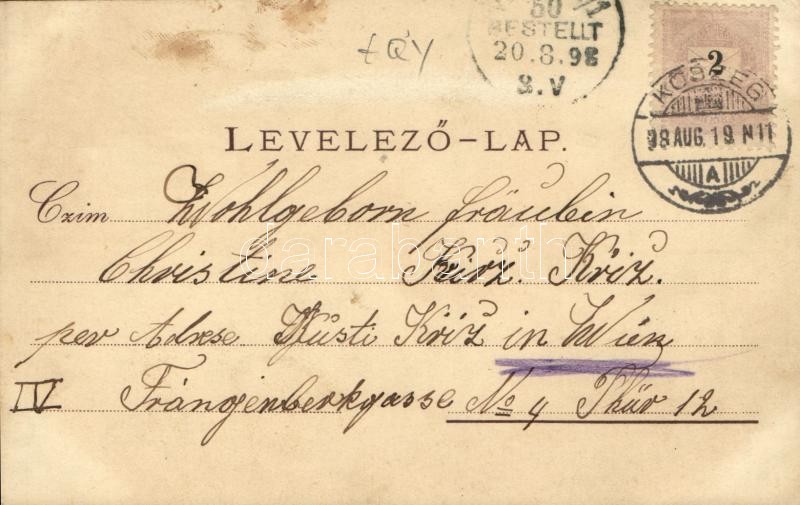 50 /1
BESTELLT
20.8.98
8.V
£QY
2
KŐSZEG
98 AUG. 19. N11
A
LEVELEZŐ-LAP.
Czim Wohlgeborn fräulein
Christine Kriz. Kriz.
per Adrese Gusti Kriz in Wien
IV Frángenberkgasse No 4 Thür 12
darabanth